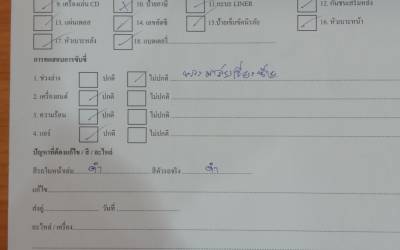 9. เครื่องเล่น CD 10. ป้ายภาษี 11.กระบะ LINER 12. กันชนเสริมหลัง
13. แผ่นเพลส 14. เลขตัสซี 15.ป้ายเข็มขัดนิรภัย 16. หัวเบาะหน้า
17. หัวเบาะหลัง 18. แบตเตอรี่
การทดสอบการขับขี่
1. ช่วงล่าง ปกติ ไม่ปกติ
2. เครื่องยนต์ ปกติ ไม่ปกติ
3. ความร้อน ปกติ ไม่ปกติ
4. แอร์ ปกติ ไม่ปกติ
ปัญหาที่ต้องแก้ไข / สี / อะไหล่
สีรถในหน้าเล่ม ดำ สีตัวรถจริง ดำ
แก้ไข
ส่งอู่ วันที่
อะไหล่ / เครื่อง